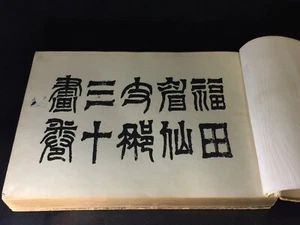 福田
眉仙
支那
三十
畫卷